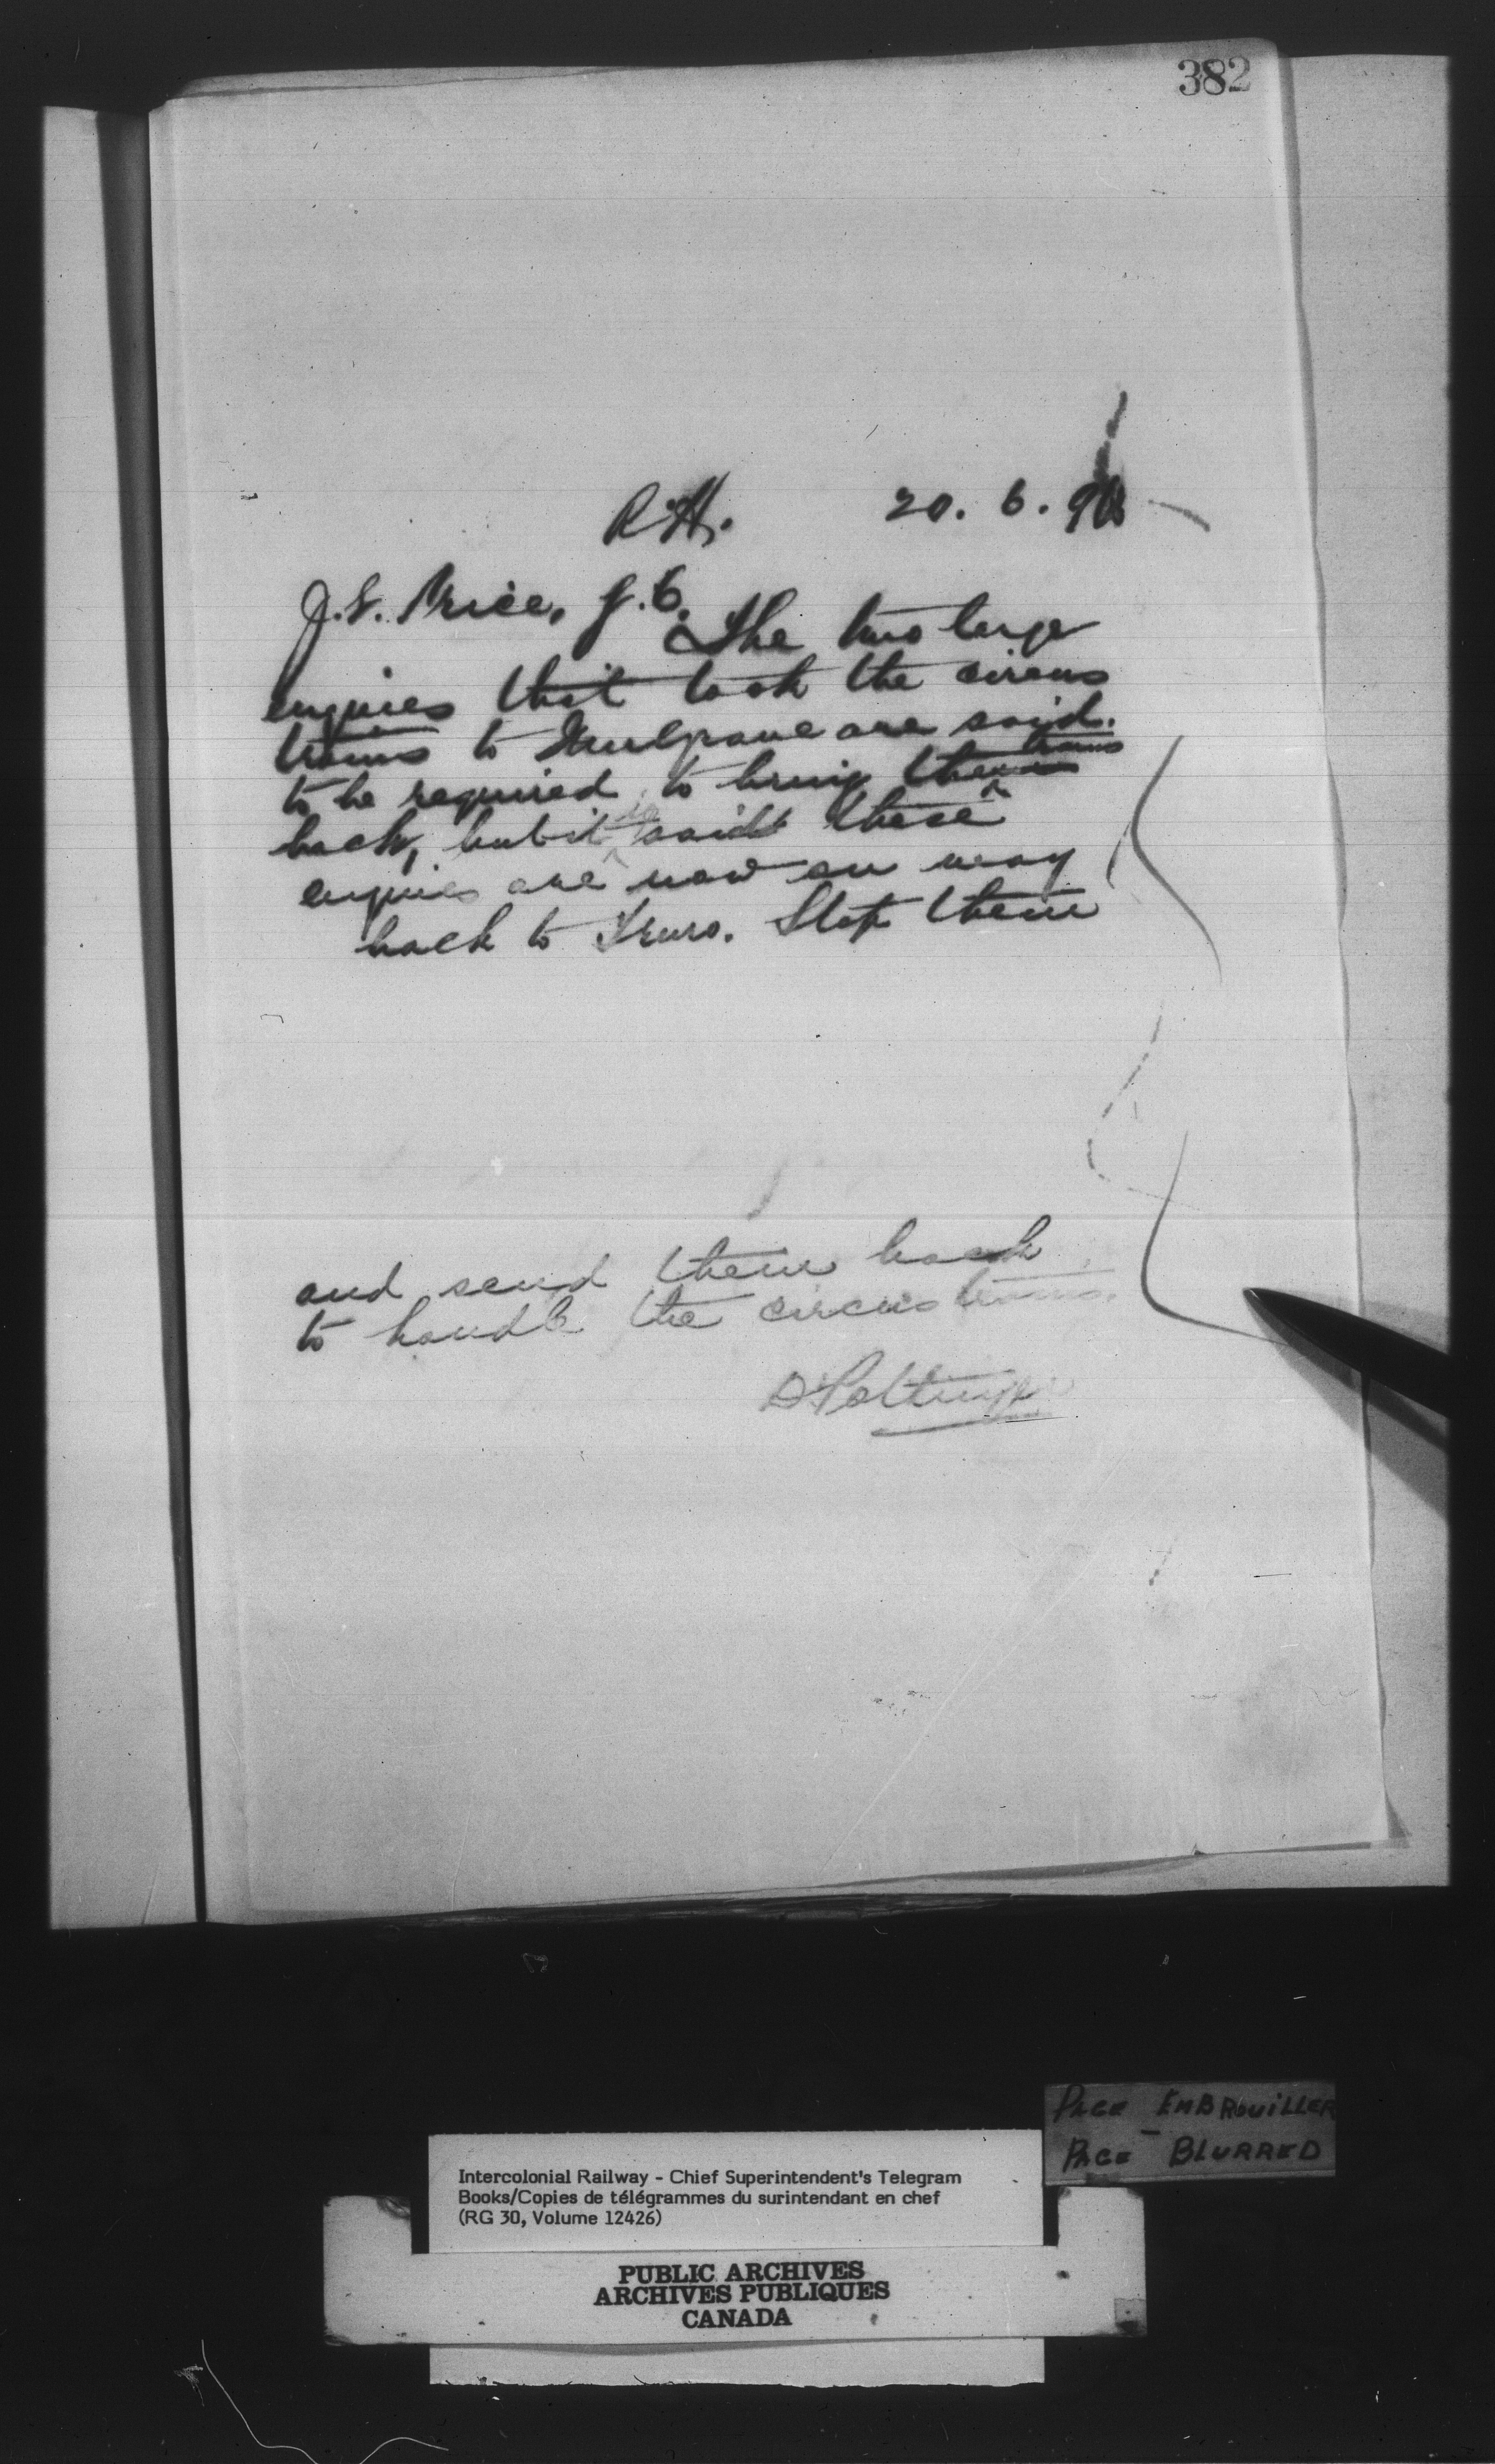 382
R.H. 20. 6. 98
J.S. Price, J.C.
The two large
engines that took the circus
trains to Mulgrave are said
to be required to bring them trains
back, but it is said these
engines are now on way
back to Truro. Stop them
and send them back
to handle the circus trains.
D Pottinger
PAGE EMBROUILLER
PAGE BLURRED
Intercolonial Railway - Chief Superintendent's Telegram
Books/Copies de télégrammes du surintendant en chef
(RG 30, Volume 12426)
PUBLIC ARCHIVES
ARCHIVES PUBLIQUES
CANADA